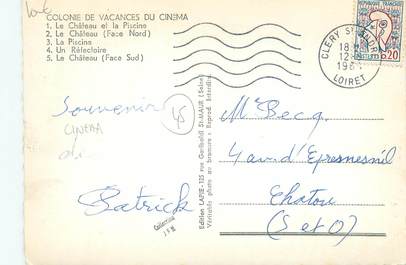 COLONIE DE VACANCES DU CINEMA
1. Le Château et la Piscine
2. Le Château (Face Nord)
3. La Piscine
4. Un Réfectoire
5. Le Château (Face Sud)
CLERY ST
18
12
196
LOIRET
0,20
Souvenir
CINEMA
45
Patrick
Edition LAPIE - 125 rue Garibaldi St-MAUR (Seine)
Véritable photo au bromure - Reprod. interdite
Mr Becq
4 av. d'Epresmesnil
Chatou
(S et O)